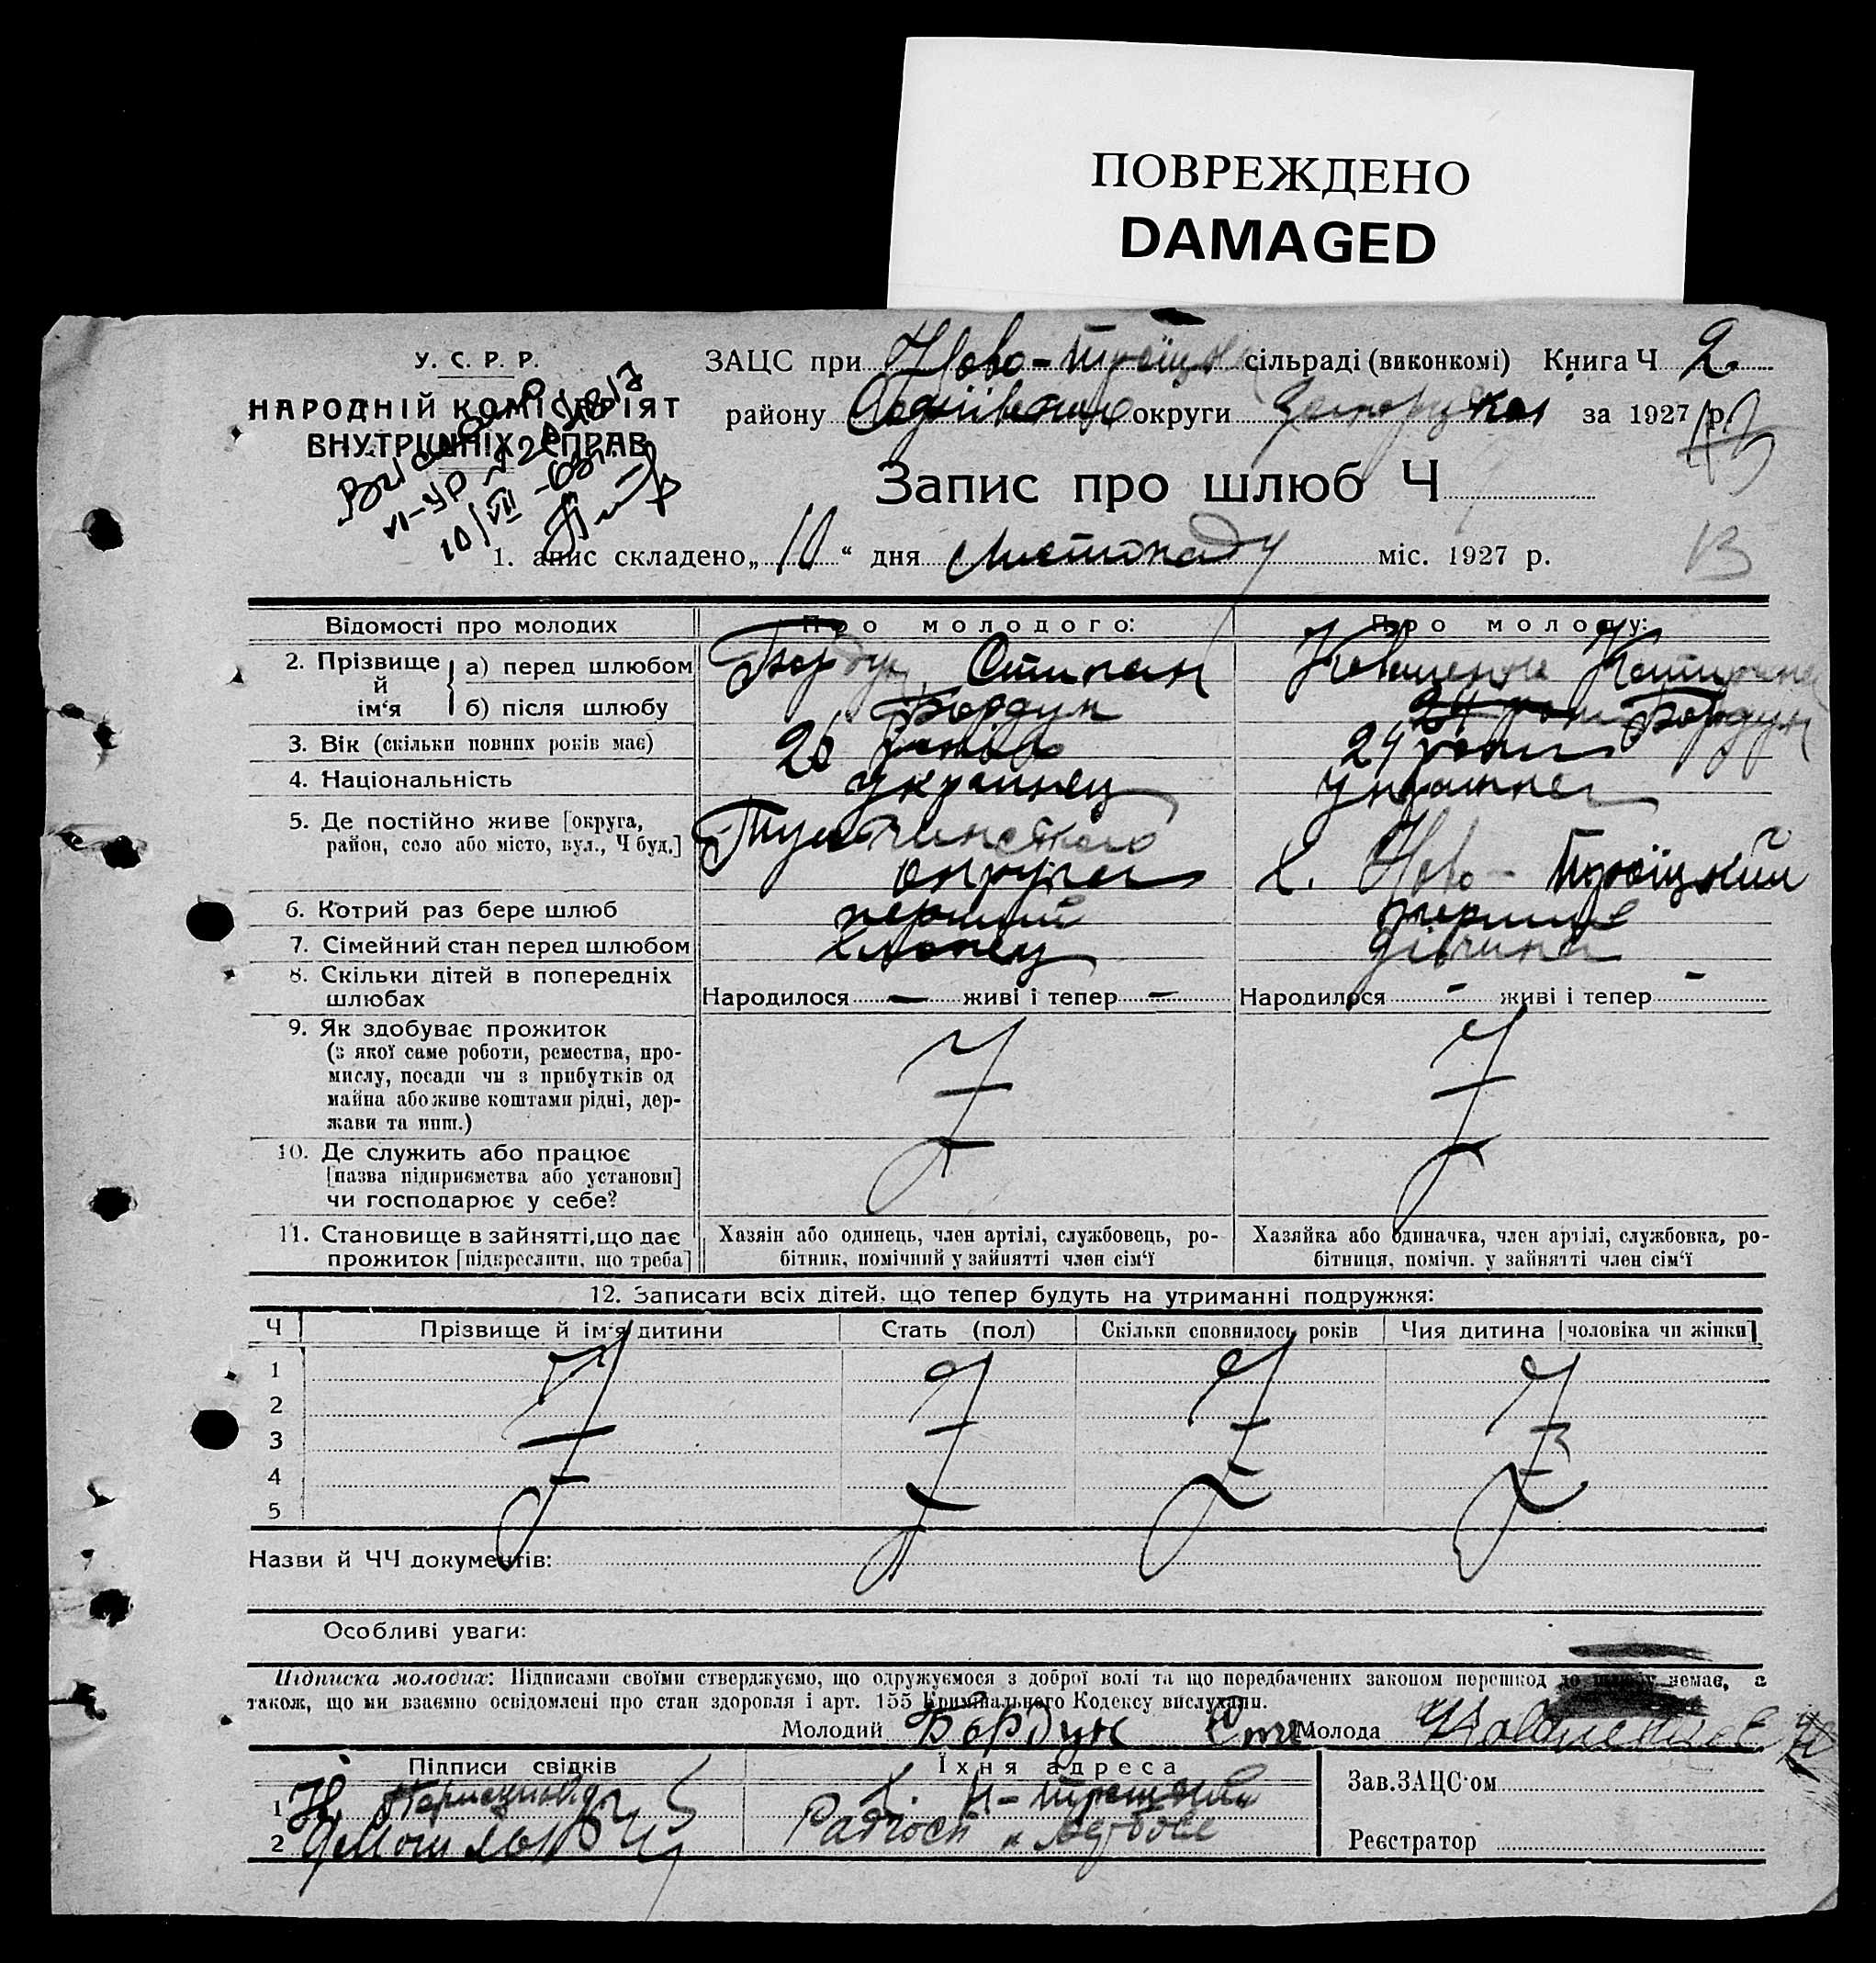 ПОВРЕЖДЕНО
DAMAGED
У. С. Р. Р.
НАРОДНІЙ КОМІСАРІЯТ
ВНУТРІШНІХ СПРАВ
ЗАЦС при Ново-Троїцькій сільраді (виконкомі) Книга Ч 2.
району округи за 1927 р.
Запис про шлюб Ч
1. апис складено „ 10 “ дня Листопаду міс. 1927 р.
13
Відомості про молодих Про молодого: Про молоду:
2. Прізвище й ім‘я
а) перед шлюбом Бордун Степан
б) після шлюбу Бордун Бордун
3. Вік (скільки повних років має) 26 років 24 роки
4. Національність українец українка
5. Де постійно живе [округа, район, село або місто, вул., Ч буд.]
округи х. Ново-Троїцкий
6. Котрий раз бере шлюб перший перший
7. Сімейний стан перед шлюбом хлопец дівчина
8. Скільки дітей в попередніх шлюбах
Народилося — живі і тепер — Народилося - живі і тепер -
9. Як здобуває прожиток
(з якої саме роботи, ремества, про-
мислу, посади чи з прибутків од
майна або живе коштами рідні, дер-
жави та инш.)
10. Де служить або працює
[назва підприємства або установи]
чи господарює у себе?
11. Становище в зайнятті, що дає
прожиток [підкреслити, що треба]
Хазяін або одинець, член артілі, службовець, ро-
бітник, помічний у зайнятті член сім‘ї
Хазяйка або одиначка, член артілі, службовка, ро-
бітниця, помічн. у зайнятті член сім‘ї
12. Записати всіх дітей, що тепер будуть на утриманні подружжя:
Ч Прізвище й ім‘я дитини Стать (пол) Скільки сповнилось років Чия дитина [чоловіка чи жінки]
1
2
3
4
5
Назви й ЧЧ документів:
Особливі уваги:
Підписка молодих: Підписами своїми стверджуємо, що одружуємося з доброї волі та що передбачених законом перешкод до шлюбу немає, а
також, що ми взаємно освідомлені про стан здоровля і арт. 155 Кримінального Кодексу вислухали.
Молодий Бордун Сте Молода
Підписи свідків Їхня адреса
1 х. Н-Троїцкий
2
Зав. ЗАЦС‘ом
Реєстратор